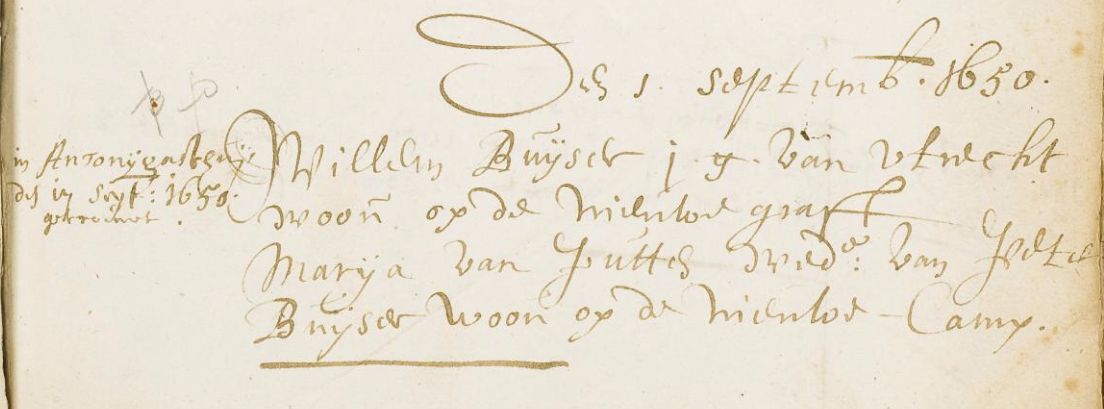 Den 1. septemb. 1650.
in Antonygasthuijs
den 17 Sept: 1650.
getrouwt.
Willem Buÿser j. g. van Vtrecht
woon op de Nieuwe graft
Marya van Putten wede: van Pete
Buÿser woon op de Nieuwe Camp.